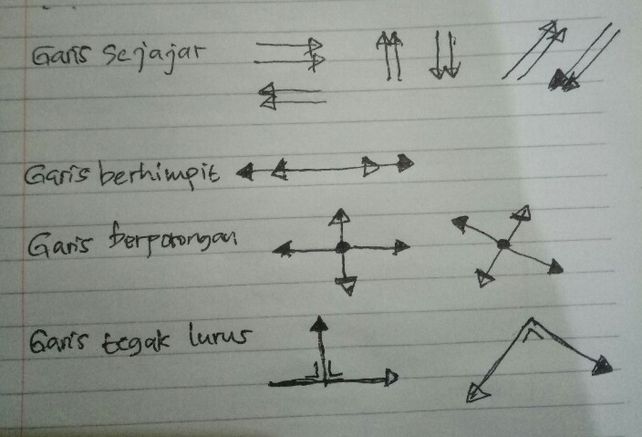 Garis sejajar
Garis berhimpit
Garis berpotongan
Garis tegak lurus